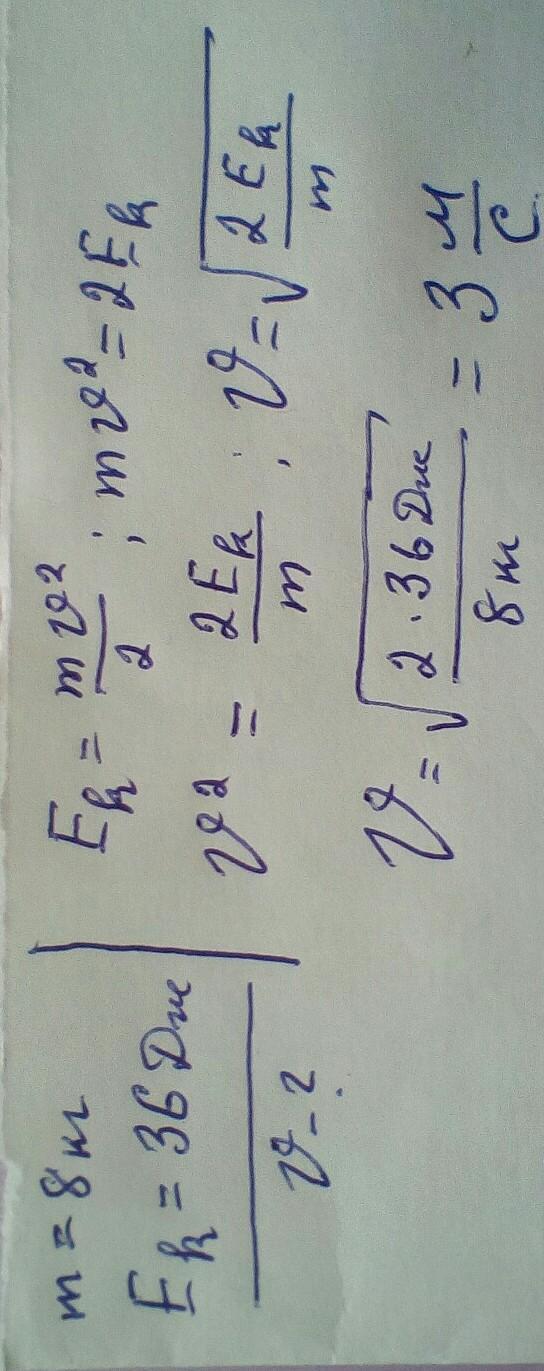 m = 8 кг
E_k = 36 Дж
v - ?
E_k = mv²/2 ; mv² = 2E_k
v² = 2E_k/m ; v = √(2E_k/m)
v = √(2·36 Дж/8 кг) = 3 м/с